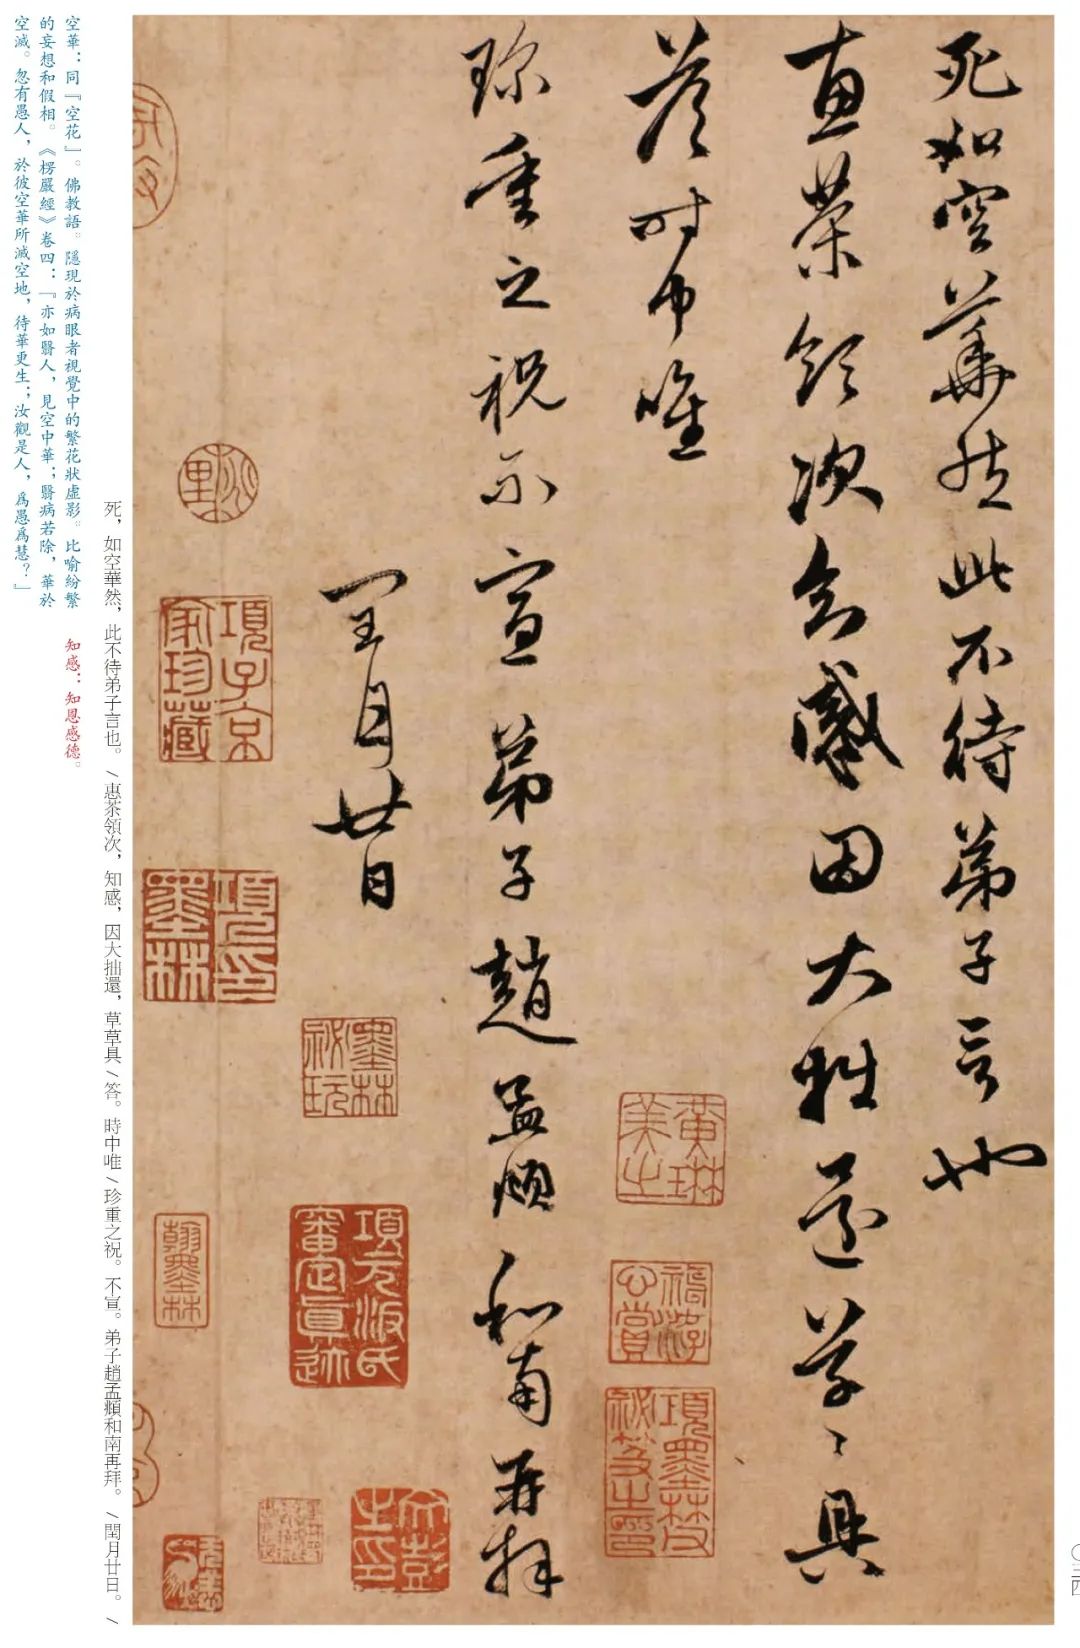 死如空華然此不待弟子言也
惠茶領次知感因大拙還草〻具
答時中唯
珍重之祝不宣弟子趙孟頫和南再拜
閏月廿日
黃琳美之
項墨林父祕笈之印
文彭之印
項元汴氏審定真迹
墨林祕玩
項子京家珍藏
項墨林印
翰墨林
死，如空華然，此不待弟子言也。/惠茶領次，知感，因大拙還，草草具/答。時中唯/珍重之祝。不宣。弟子趙孟頫和南再拜。/閏月廿日。/
空華：同『空花』。佛教語。隱現於病眼者視覺中的繁花狀虛影。比喻紛繁
的妄想和假相。《楞嚴經》卷四：『亦如翳人，見空中華；翳病若除，華於
空滅。忽有愚人，於彼空華所滅空地，待華更生；汝觀是人，爲愚爲慧？』
知感：知恩感德。
〇三四